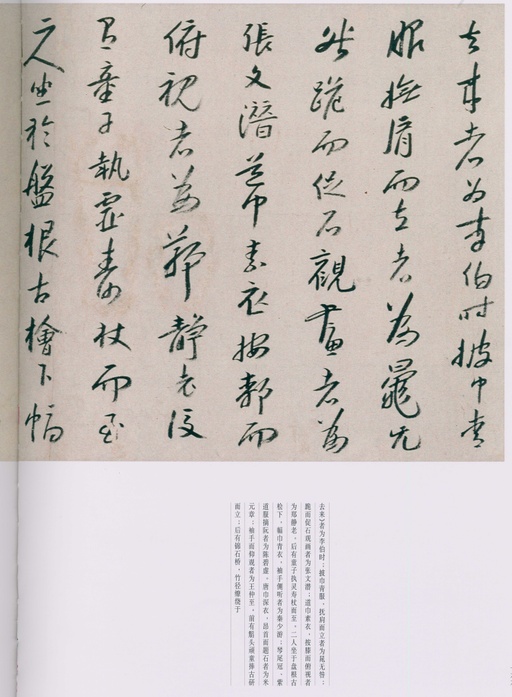 去來者為李伯時披巾青
服撫肩而立者為晁无
咎跪而促石觀畫者為
張文潛道巾素衣按膝而
俯視者為鄭靜老後
有童子執靈壽杖而至
二人坐於盤根古檜下幅
去来)者为李伯时；披巾青服，抚肩而立者为晁无咎；
跪而促石观画者为张文潜；道巾素衣，按膝而俯视者
为郑静老，后有童子执灵寿杖而至。二人坐于盘根古
桧下，幅巾青衣，袖手侧听者为秦少游；琴尾冠、紫
道服摘阮者为陈碧虚。唐巾深衣，昂首而题石者为米
元章；袖手而仰观者为王仲至。前有鬅头顽童捧古研
而立；后有锦石桥、竹径缭绕于